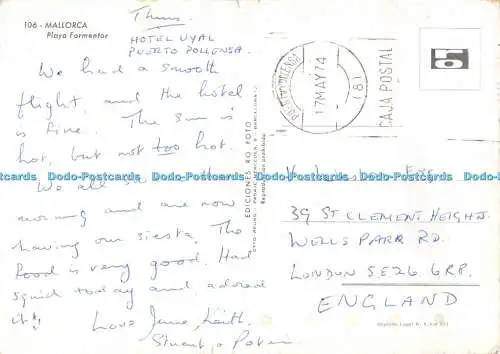 106 - MALLORCA
Playa Formentor
Thurs.
HOTEL UYAL
PUERTO POLLENSA.
We had a smooth
flight, and the hotel
is fine. The sun is
hot, but not too hot.
We all
morning and are now
having our siesta. The
food is very good. Had
squid today and adored
it!!
Love Jane, Keith,
Stuart &
EDICIONES RO FOTO
Reproducción prohibida
17 MAY 74
(81)
CAJA POSTAL
39 ST CLEMENT HEIGHTS.
WELLS PARK RD.
LONDON SE26 6RP.
ENGLAND
Dodo-Postcards Dodo-Postcards Dodo-Postcards Dodo-Postcards Dodo-Postcards Dodo-Postcards